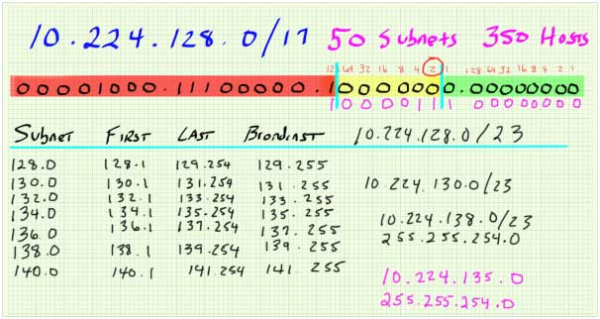 10.224.128.0/17 50 Subnets 350 Hosts
12 64 32 16 8 4 2 1 128 64 32 16 8 4 2 1
00001000.11100000.10000000.00000000
Subnet First Last Broadcast 10.224.128.0/23
128.0 128.1 129.254 129.255
130.0 130.1 131.254 131.255 10.224.130.0/23
132.0 132.1 133.254 133.255
134.0 134.1 135.254 135.255 10.224.138.0/23
136.0 136.1 137.254 137.255 255.255.254.0
138.0 138.1 139.254 139.255
140.0 140.1 141.254 141.255 10.224.135.0
255.255.254.0